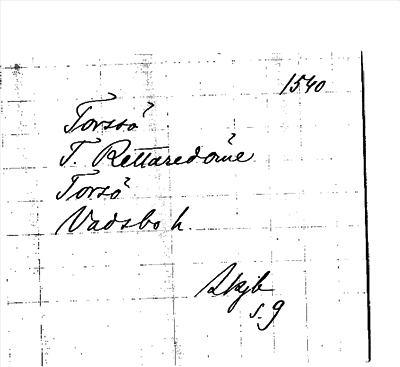 1540
Torssö
T. Rettaredöme
Torsö
Vadsbo h.
Skjb
s. 9